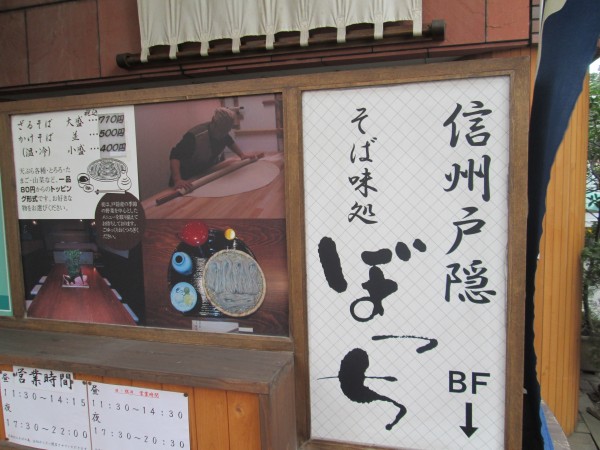 税込
ざるそば 大盛…710円
かけそば 並…500円
(温・冷) 小盛…400円
天ぷら各種・とろろ・た
まご・山菜など、一品
80円からのトッピン
グ形式です。お好きな
物をお選びください。
信州戸隠
そば味処
ぼっち
BF
営業時間
昼
11:30~14:15
夜
17:30~22:00
昼
11:30~14:30
夜
17:30~20:30